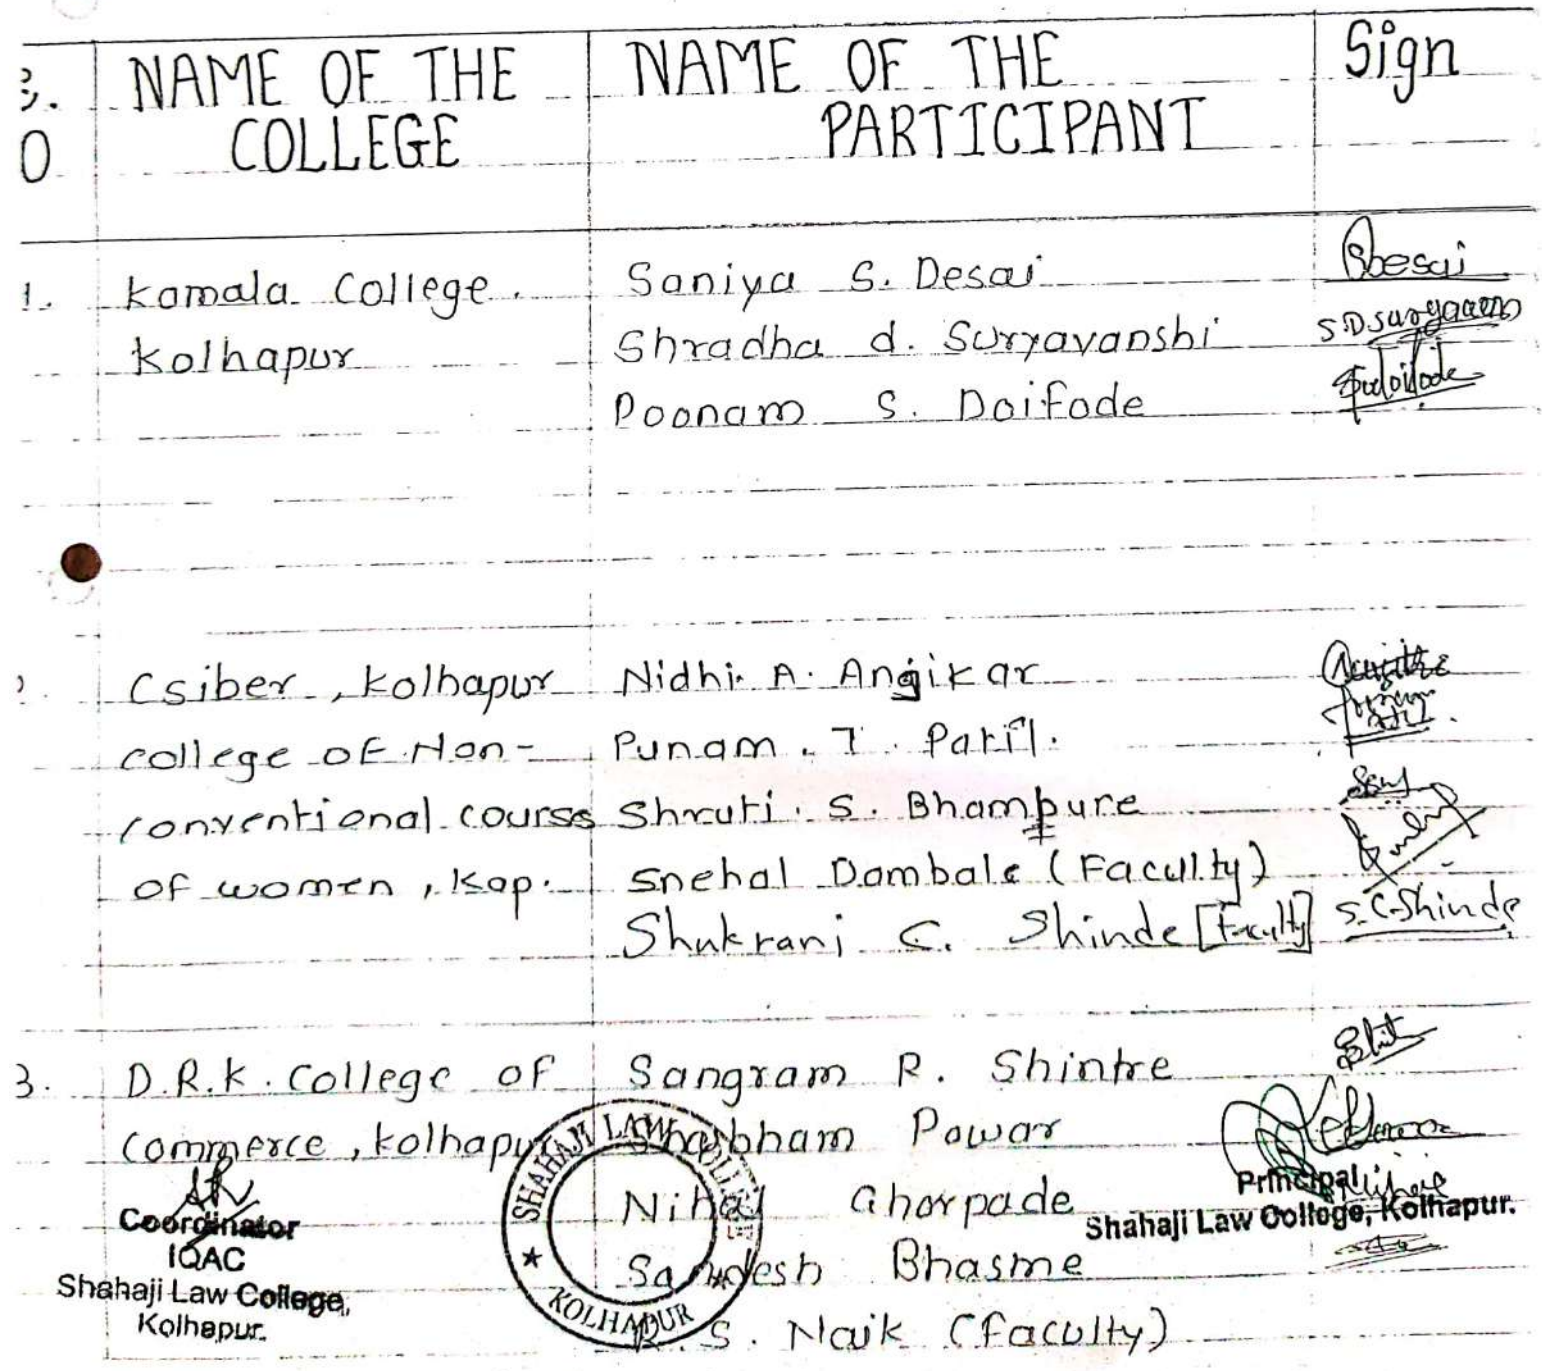 NAME OF THE COLLEGE
NAME OF THE PARTICIPANT
Sign
1. Kamala College.
Kolhapur
Saniya S. Desai
Shradha d. Suryavanshi
Poonam S. Doifode
Csiber, Kolhapur
college of Non-
conventional courss
of women, Kop.
Nidhi A. Angikar
Punam. T. Patil.
Shruti. S. Bhampure
Snehal Dambale (Faculty)
Shukrani C. Shinde [Faculty]
S.C.Shinde
3. D.R.K. College of
commerce, Kolhapur
Sangram R. Shintre
Shubham Powar
Nihal Ghorpade
Sandesh Bhasme
S. Naik (Faculty)
Coordinator
IQAC
Shahaji Law College,
Kolhapur.
SHAHAJI LAW COLLEGE
KOLHAPUR
Principal
Shahaji Law College, Kolhapur.